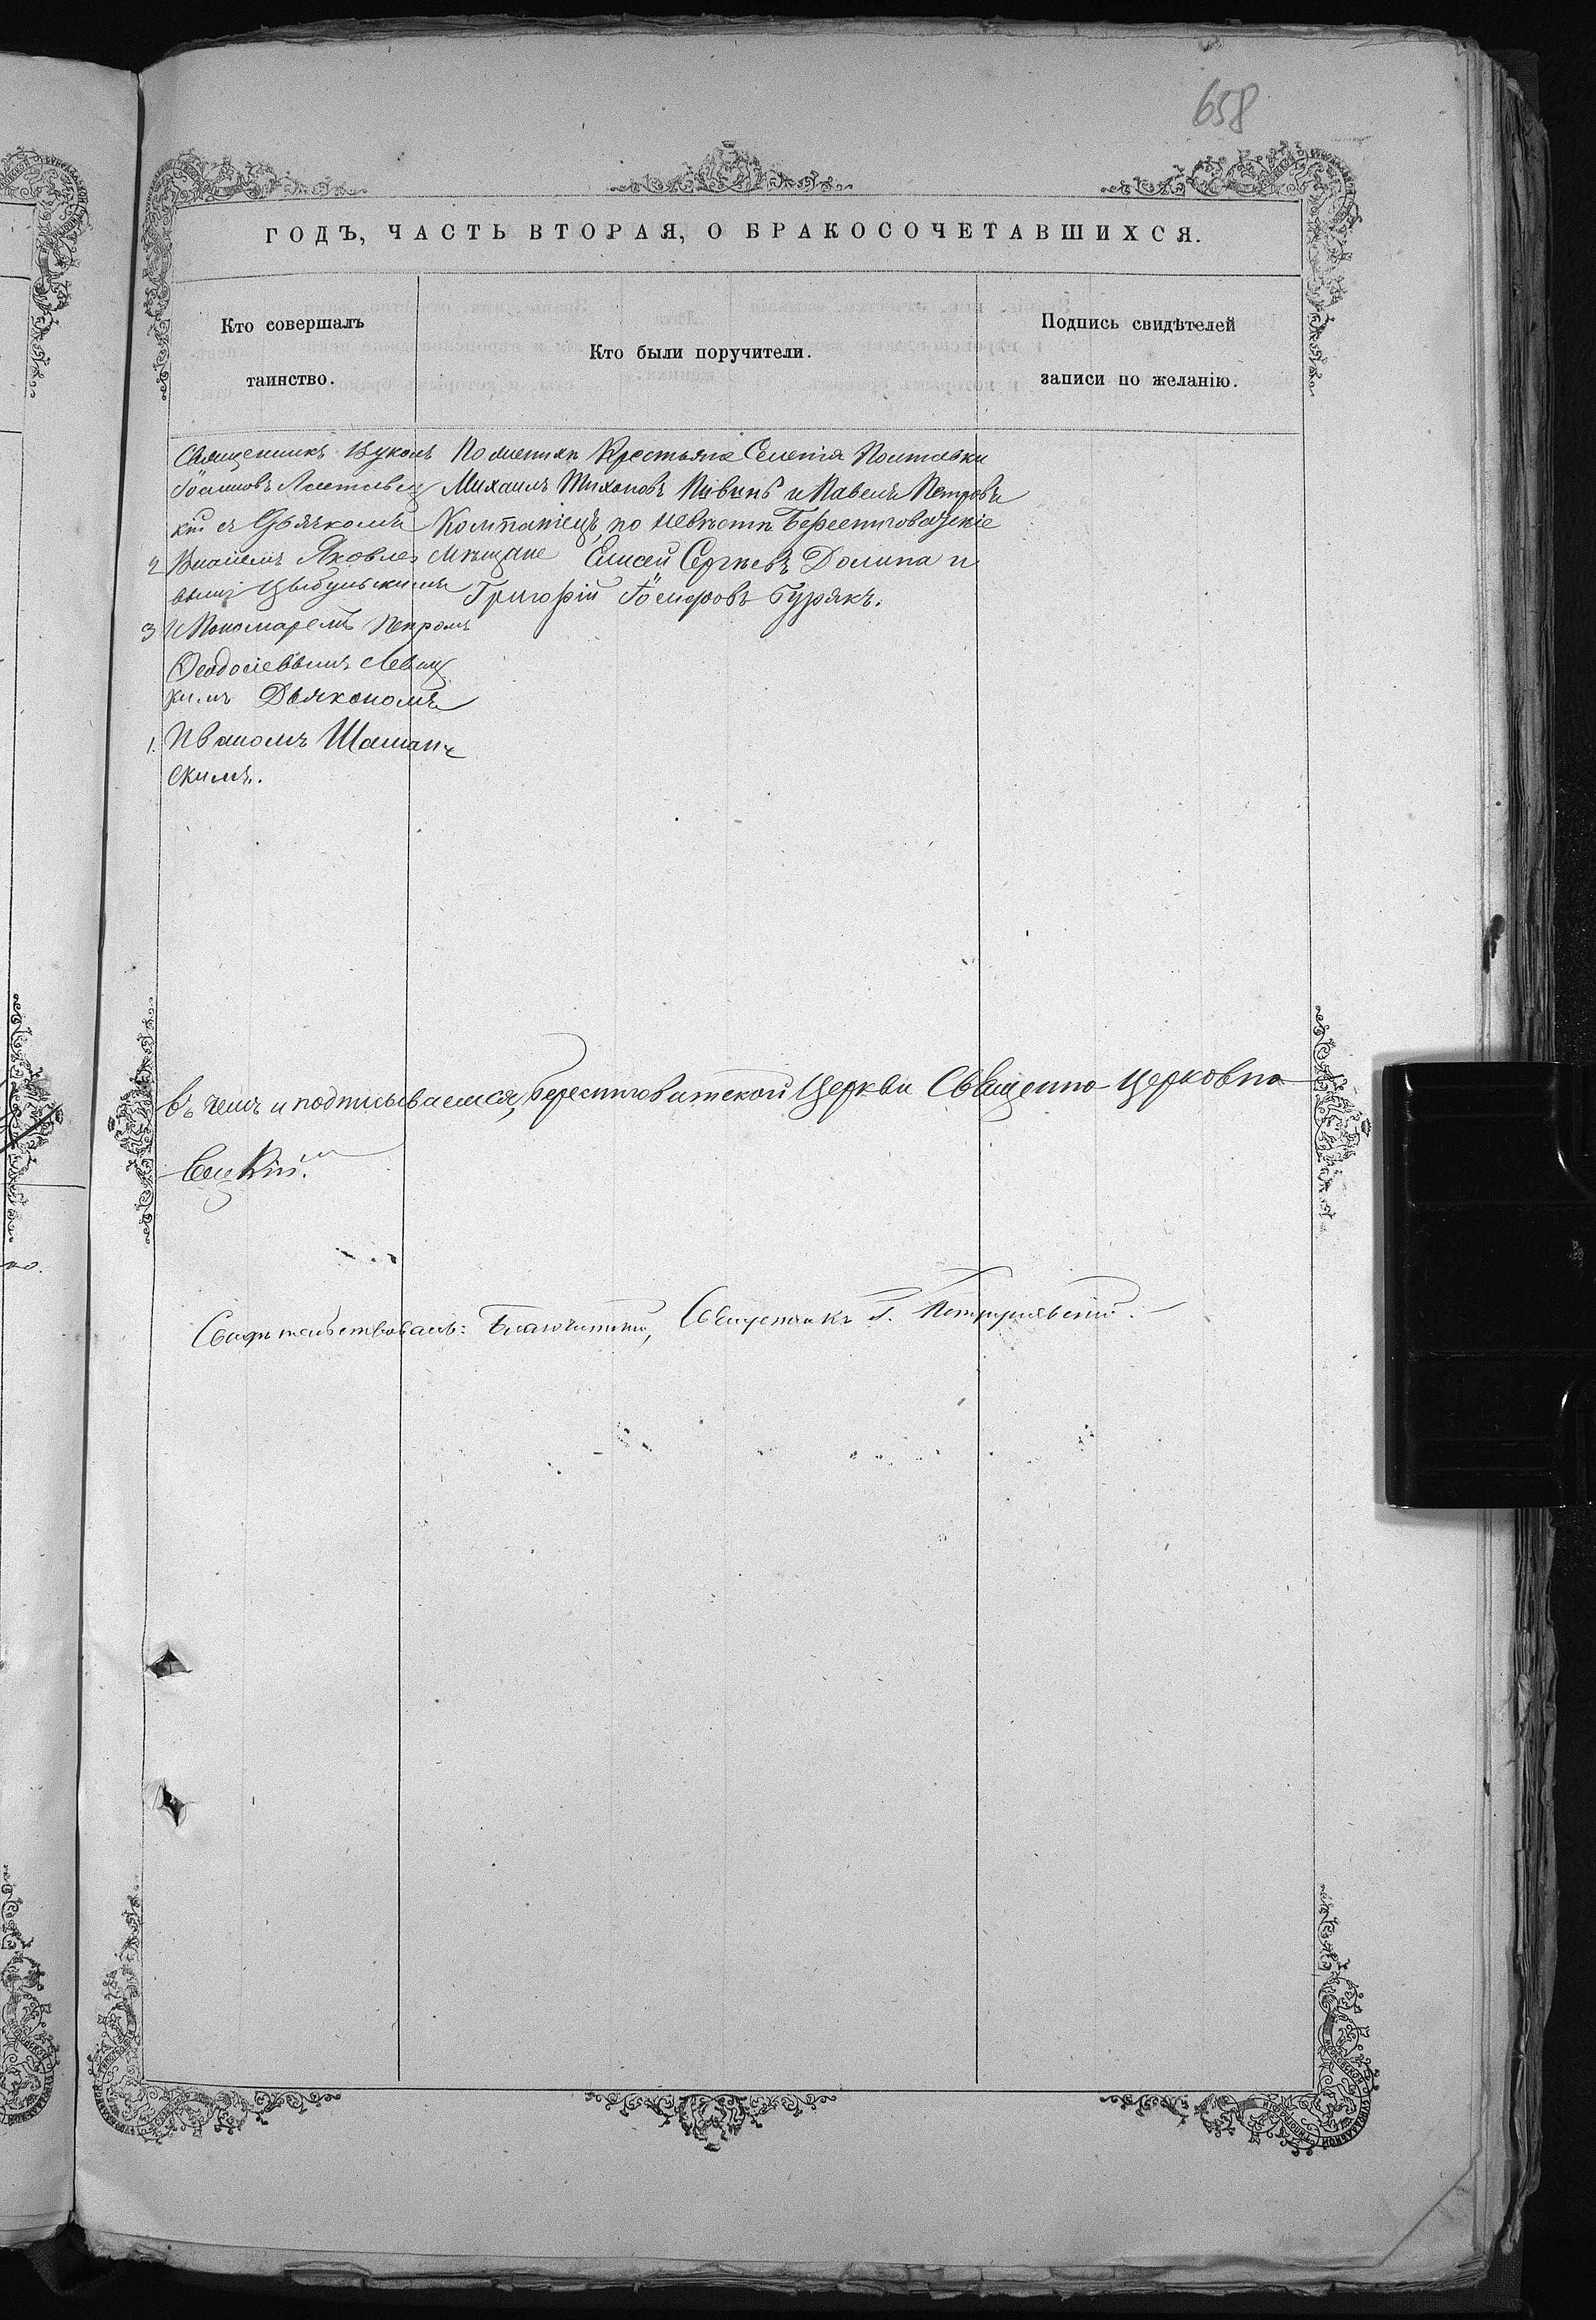 658
ГОДЪ, ЧАСТЬ ВТОРАЯ, О БРАКОСОЧЕТАВШИХСЯ.
Кто совершалъ
таинство.
Кто были поручители.
Подпись свидѣтелей
записи по желанію.
Священникъ Вуколъ
Іоанновъ
кій съ Дьячкомъ
2 Яковле
вымъ Цыбульскимъ
3 и Пономаремъ Петромъ
Ѳеодосіевымъ Левиц
кимъ Дьякономъ
1. Иваномъ Шаман
скимъ.
По женихѣ Крестьяне Селенія Полтавки
Михаилъ Тихоновъ Пивень и Павелъ Петровъ
Компаніецъ, по невѣстѣ Берестоватскіе
мѣщане Елисей Сергѣевъ Долина и
Григорій Бурякъ.
Въ чемъ и подписываемся, Берестоватской Церкви Священно-Церковно
Свидѣтельствовалъ: Благочинный, Священникъ